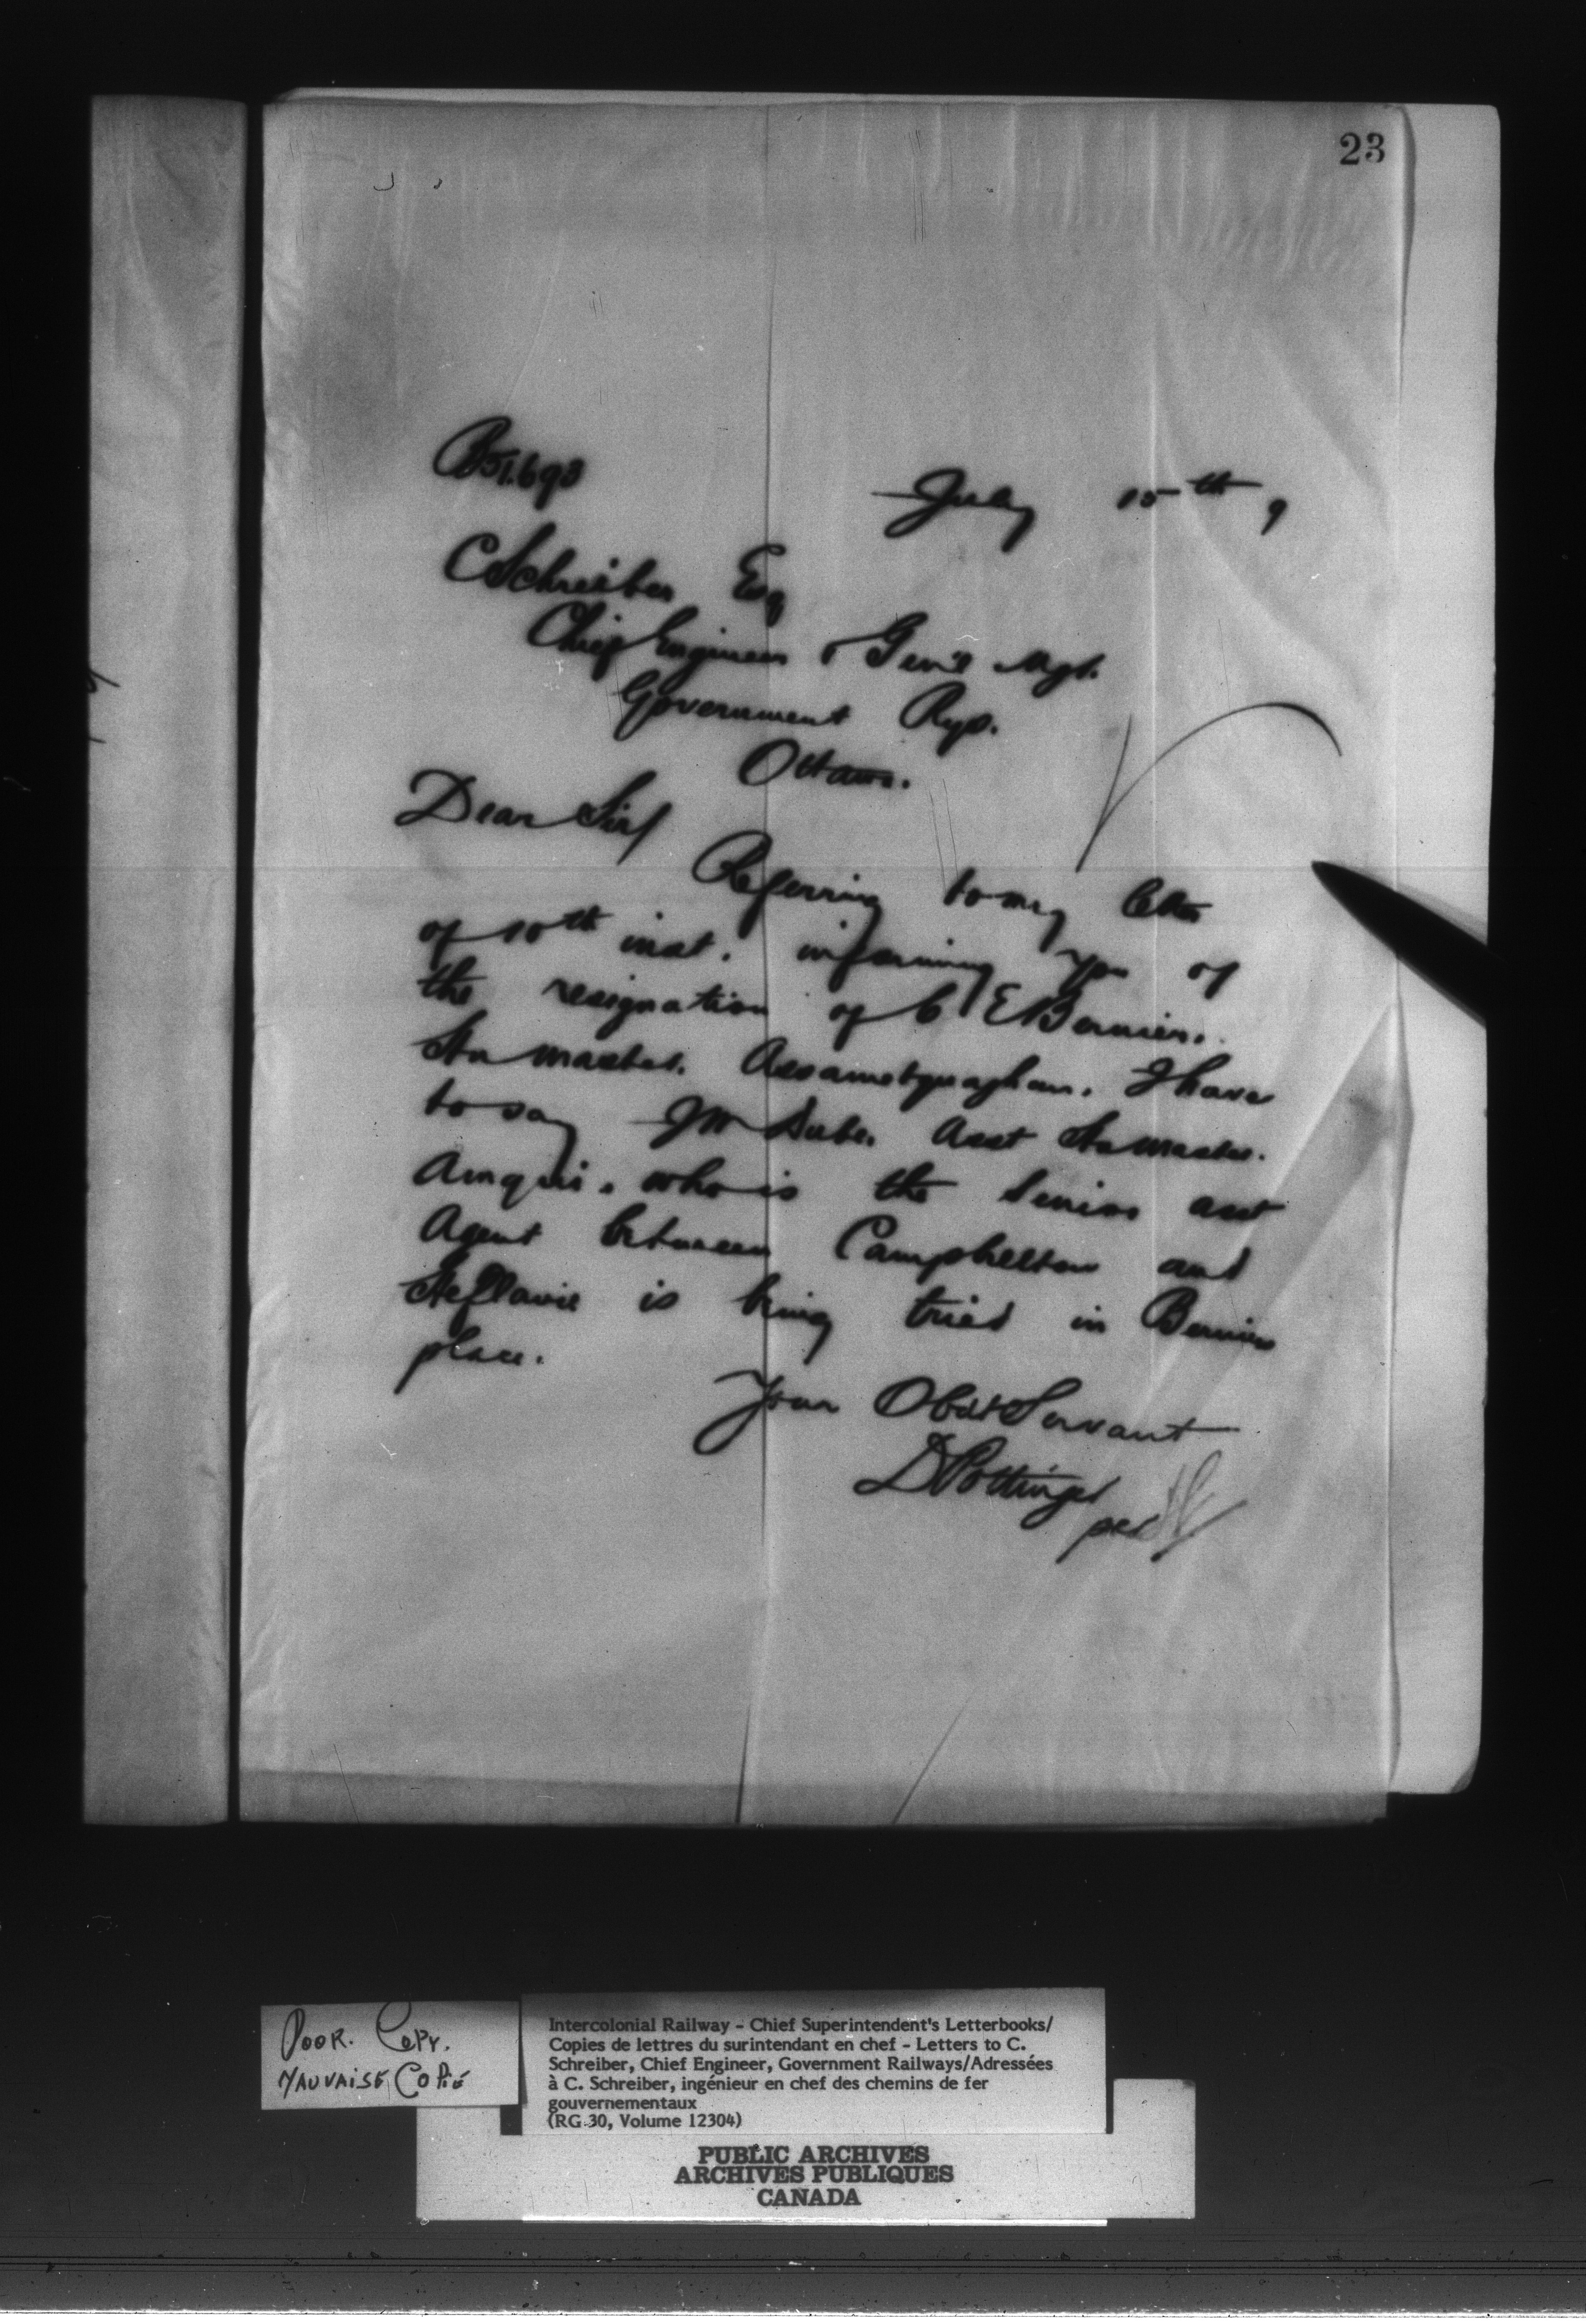 23
B51.693
July 15th 9
C Schreiber Esq
Chief Engineer & Gen'l Mgr.
Government Rys.
Ottawa.
Dear Sir/
Referring to my letter
of 10th inst. informing you of
the resignation of C E Bernier.
Stn master. Assametquaghan. I have
to say J M Dube. Asst Stn master.
Amqui. who is the Senior asst
Agent between Campbellton and
Ste Flavie is being tried in Bernier
place.
Your Obdt Servant
D Pottinger
per
POOR. COPY.
MAUVAISE COPIE
Intercolonial Railway - Chief Superintendent's Letterbooks/
Copies de lettres du surintendant en chef - Letters to C.
Schreiber, Chief Engineer, Government Railways/Adressées
à C. Schreiber, ingénieur en chef des chemins de fer
gouvernementaux
(RG 30, Volume 12304)
PUBLIC ARCHIVES
ARCHIVES PUBLIQUES
CANADA